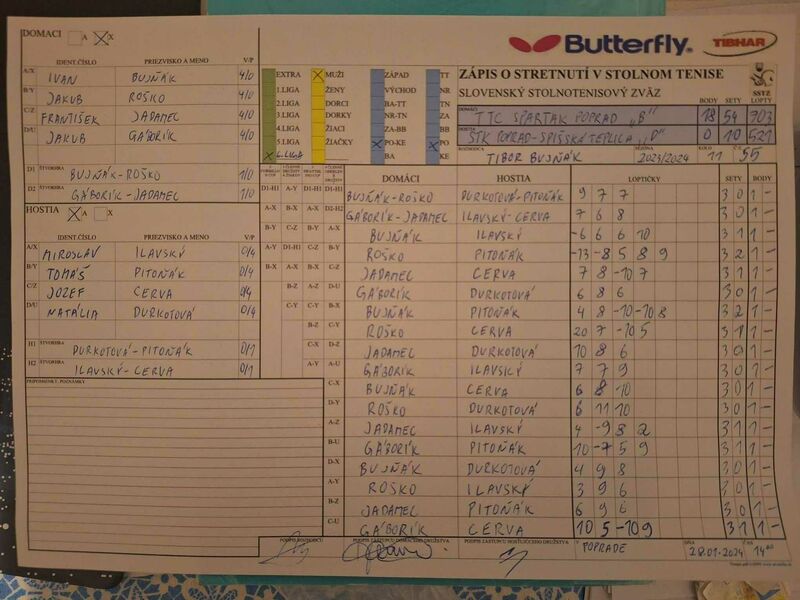 DOMACI A X
Butterfly. TIBHAR
IDENT.ČÍSLO PRIEZVISKO A MENO V/P
A/X IVAN BUJŇÁK 4/0
B/Y JAKUB ROŠKO 4/0
C/Z FRANTIŠEK JADAMEC 4/0
D/U JAKUB GÁBORÍK 4/0
D1 ŠTVORHRA BUJŇÁK-ROŠKO 1/0
D2 GÁBORÍK-JADAMEC 1/0
HOSTIA A X
IDENT.ČÍSLO PRIEZVISKO A MENO V/P
A/X MIROSLAV ILAVSKÝ 0/4
B/Y TOMÁŠ PITOŇÁK 0/4
C/Z JOZEF CERVA 0/4
D/U NATÁLIA DURKOTOVÁ 0/4
H1 ŠTVORHRA DURKOTOVÁ-PITOŇÁK 0/1
H2 ILAVSKÝ-CERVA 0/1
PRIPOMIENKY, POZNÁMKY
EXTRA MUŽI ZÁPAD TT
1.LIGA ŽENY VÝCHOD NR
2.LIGA DORCI BA-TT TN
3.LIGA DORKY NR-TN ZA
4.LIGA ŽIACI ZA-BB BB
5.LIGA ŽIAČKY PO-KE PO
6.LIGA BA KE
ZÁPIS O STRETNUTÍ V STOLNOM TENISE
SLOVENSKÝ STOLNOTENISOVÝ ZVÄZ
SSTZ
BODY SETY LOPTY
DOMÁCI TTC SPARTAK POPRAD „B" 18 54 703
HOSTIA STK POPRAD-SPIŠSKÁ TEPLICA „D" 0 10 521
ROZHODCA TIBOR BUJŇÁK 2023/2024 KOLO 11 Č.S. 55
DOMÁCI HOSTIA LOPTIČKY SETY BODY
D1-H1 A-Y D1-H1 BUJŇÁK-ROŠKO DURKOTOVÁ-PITOŇÁK 9 7 7 3 0 1 -
A-X B-X A-X D2-H2 GÁBORÍK-JADAMEC ILAVSKÝ-CERVA 7 6 8 3 0 1 -
B-Y C-Z B-Y A-X BUJŇÁK ILAVSKÝ -6 6 6 10 3 1 1 -
A-Y D1-H1 C-Z B-Y ROŠKO PITOŇÁK -13 -8 5 8 9 3 2 1 -
B-X A-X B-X C-Z JADAMEC CERVA 7 8 -10 7 3 1 1 -
B-Z A-Z D-U GÁBORÍK DURKOTOVÁ 6 8 6 3 0 1 -
C-Y C-X B-X BUJŇÁK PITOŇÁK 4 8 -10 -10 8 3 2 1 -
B-Z C-Y ROŠKO CERVA 20 7 -10 5 3 1 1 -
C-X D-Z JADAMEC DURKOTOVÁ 10 8 6 3 0 1 -
A-Y A-U GÁBORÍK ILAVSKÝ 7 7 9 3 0 1 -
C-X BUJŇÁK CERVA 6 8 10 3 0 1 -
D-Y ROŠKO DURKOTOVÁ 6 11 10 3 0 1 -
A-Z JADAMEC ILAVSKÝ 4 -9 8 2 3 1 1 -
B-U GÁBORÍK PITOŇÁK 10 -7 5 9 3 1 1 -
D-X BUJŇÁK DURKOTOVÁ 4 9 8 3 0 1 -
A-Y ROŠKO ILAVSKÝ 3 9 6 3 0 1 -
B-Z JADAMEC PITOŇÁK 6 9 6 3 0 1 -
C-U GÁBORÍK CERVA 10 5 -10 9 3 1 1 -
PODPIS ROZHODCU PODPIS ZÁSTUPCU DOMÁCEHO DRUŽSTVA PODPIS ZÁSTUPCU HOSŤUJÚCEHO DRUŽSTVA V POPRADE DŇA 28.01.2024